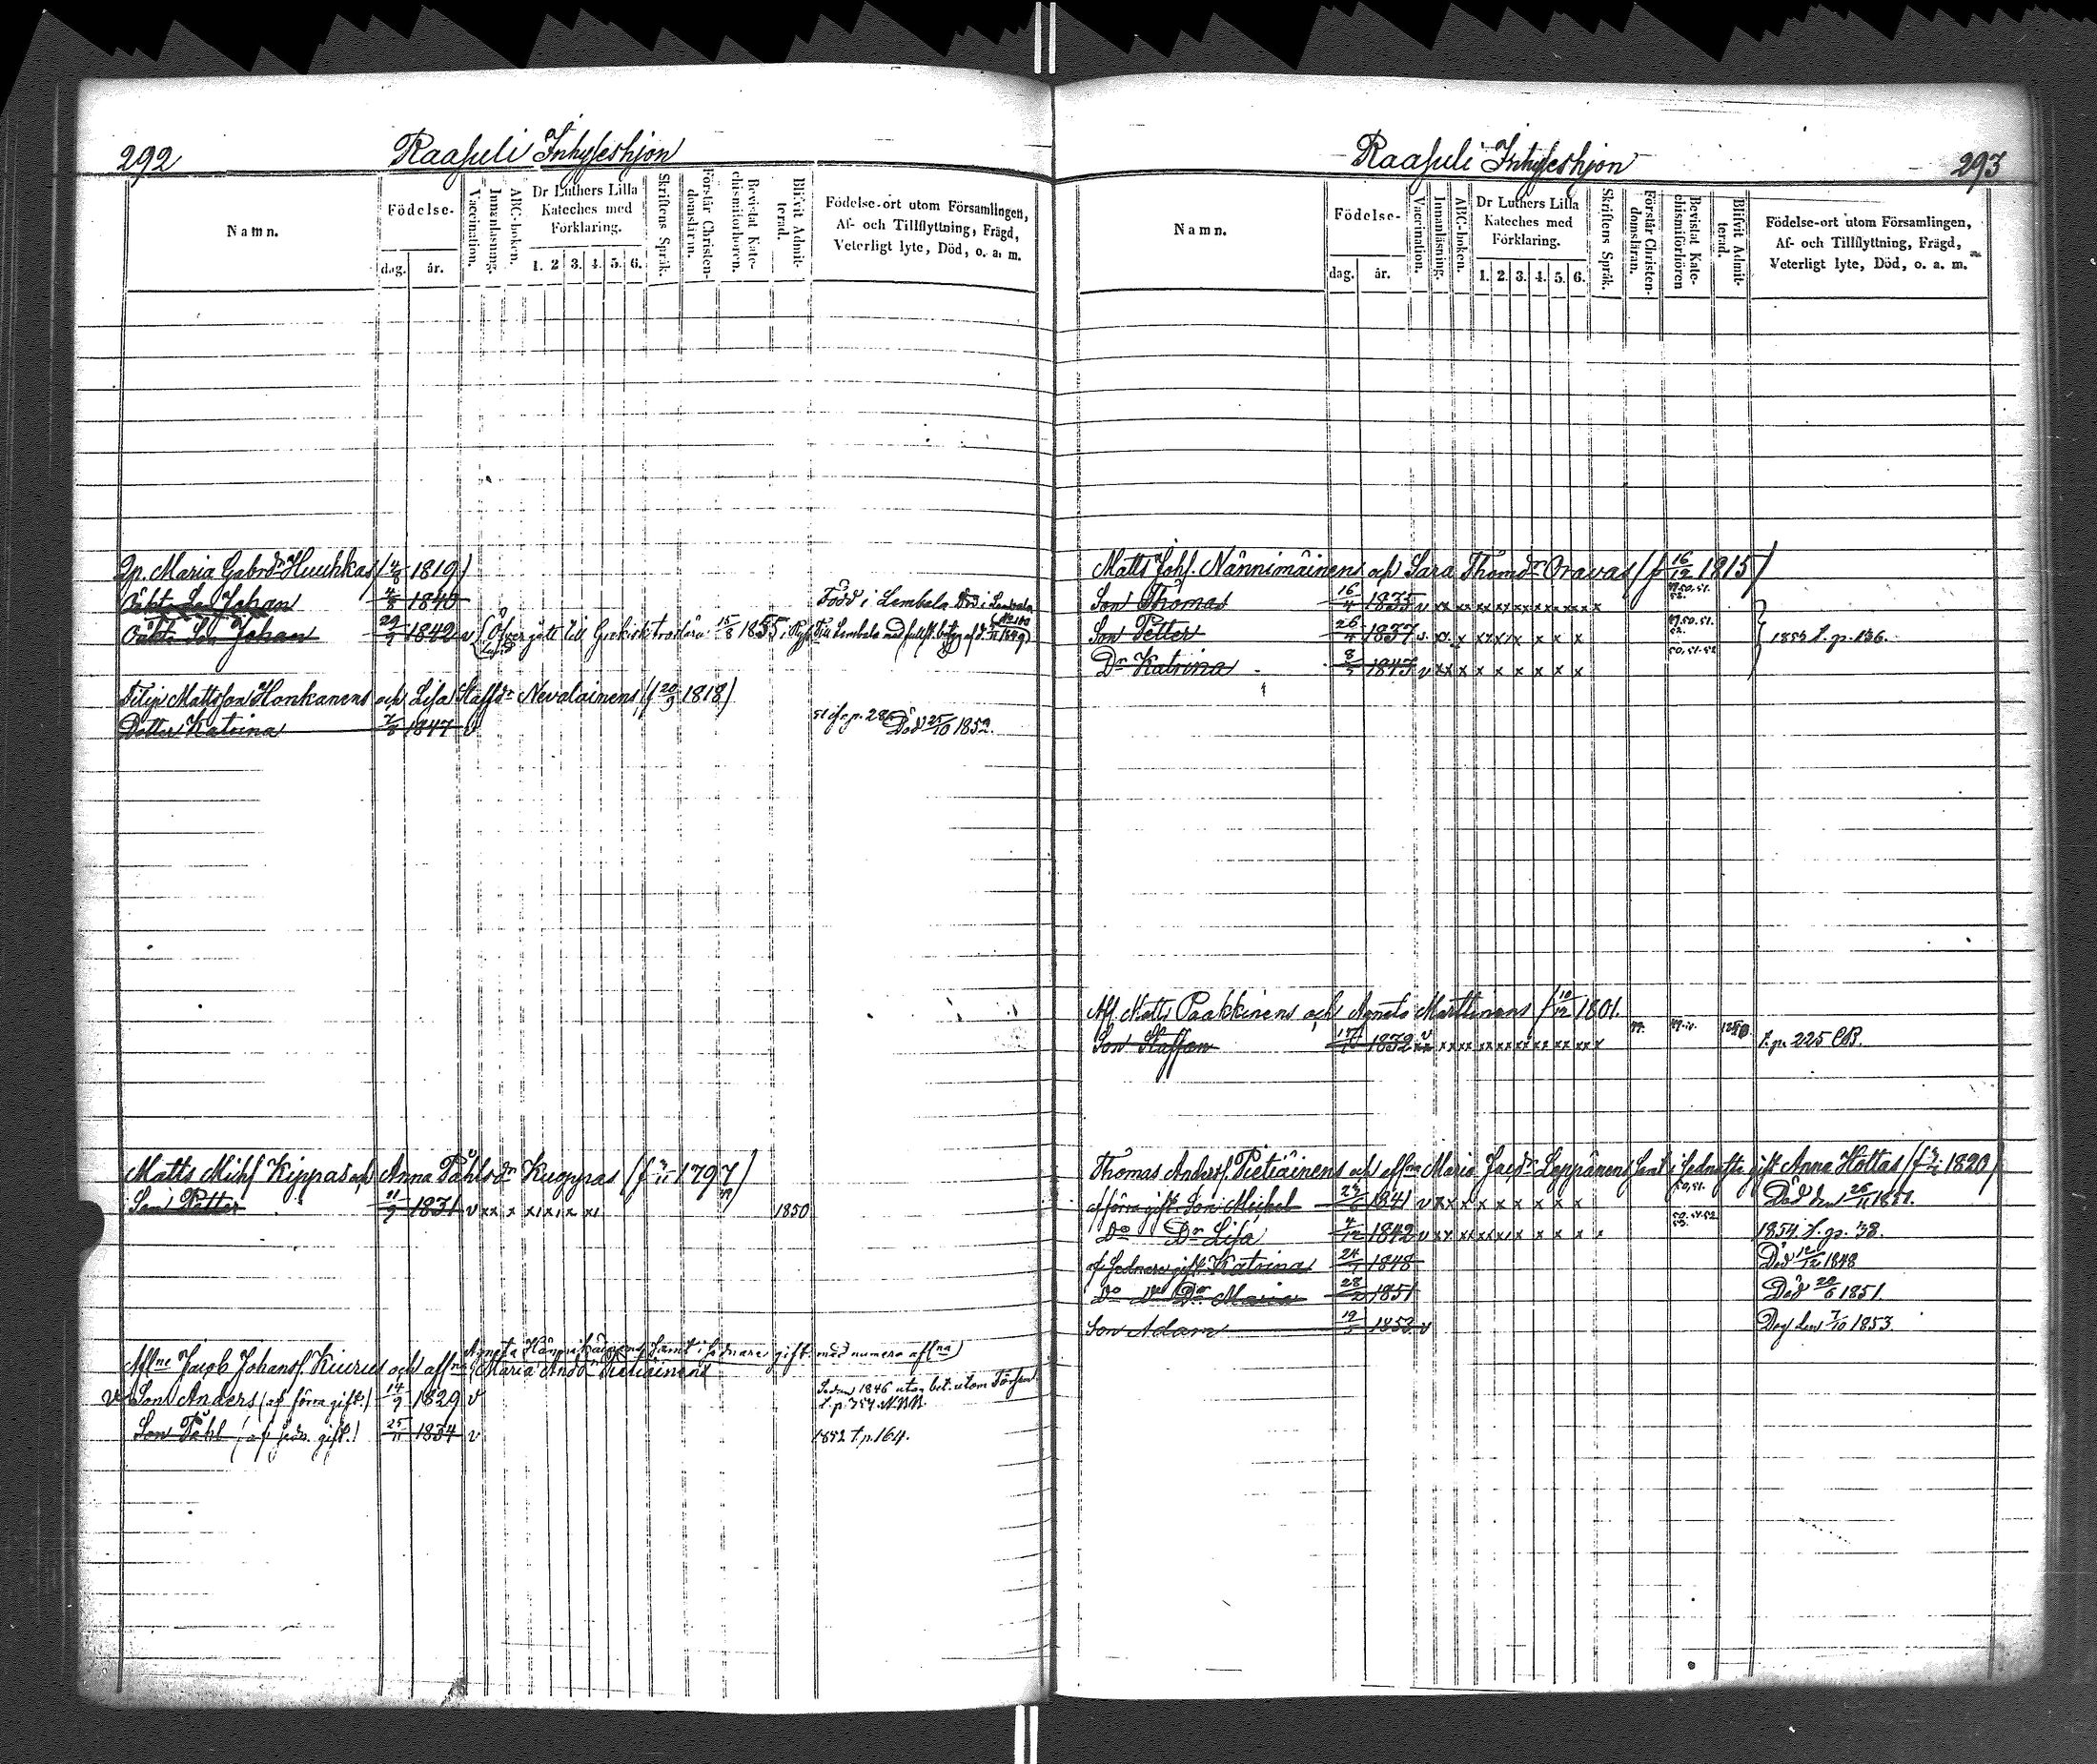 292
Raasuli Inhyseshjon
Namn.
Födelse-
dag.
år.
Vaccination.
Innanläsning.
ABC-boken.
Dr Luthers Lilla
Kateches med
Förklaring.
1. 2 3. 4. 5. 6.
Skriftens Språk.
Förstår Christen-
domsläran.
Bevistat Kate-
chismiförhören.
Blifvit Admit-
terad.
Födelse-ort utom Församlingen,
Af- och Tillflyttning, Frägd,
Veterligt lyte, Död, o. a. m.
Qp. Maria Gabrdr Huuhkas (4/8 1819)
Oäkta Son Johan 4/8 1840 Född i Lembala Död i Lembala
Oäkta Son Johan 29/9 1842 v Öfvergått till Grekiska trosläran 15/8 1855
Filip Mattsson Honkanens och Lisa Staffdr Nevalainens (f 20/9 1818)
Dotter Katrina 7/8 1847 v Död 25/10 1852.
Matts Michs Kippas och Anna Påhlsdr Kuoppas (f 2/11 1797)
Son Petter 11/9 1831 v xx x x x x x x 1850
Agneta Hännikäinens samt i sednare gift med numera aflna)
Aflne Jacob Johanss. Kiurus och aflna (Maria Andsdr Pietiäinens
v Son Anders (af förra gift.) 14/9 1829 v Sedan 1846 utan bet. utom Förs.
Son Påhl (af sedn. gift.) 25/11 1834 v 1852 T.p. 164.
Raasuli Inhyseshjon
293
Namn.
Födelse-
dag.
år.
Vaccination.
Innanläsning.
ABC-boken.
Dr Luthers Lilla
Kateches med
Förklaring.
1. 2. 3. 4. 5. 6.
Skriftens Språk.
Förstår Christen-
domsläran.
Bevistat Kate-
chismiförhören
Blifvit Admit-
terad.
Födelse-ort utom Församlingen,
Af- och Tillflyttning, Frägd,
Veterligt lyte, Död, o. a. m.
Matts Johs. Nännimäinens och Sara Thomdr Oravas (f 16/12 1815)
Son Thomas 16/4 1835 v xx xx xx xx xx xx xx x 49.50.51. 52.
Son Petter 26/4 1837 v xx x xx xx x x x 49.50.51. 52. 1853 T. p. 136.
Dr Katrina 8/5 1843 v xx x x x x x x x 50.51.52
Afl. Matts Paakkinens och Agneta Martinens f 10/12 1801.
Son Staffan 1832 v xx xx xx xx xx xx xx x T. p. 225 CB.
Thomas Anderss. Pietiäinens och aflna Maria Jacdr Leppänens samt i sednaste gift Anna Hottas (f 1820)
af förra gift. Son Michel 23/6 1841 v xx x x x x x x 50,51. Död den 26/11 1851.
Do Dr Lisa 4/12 1842 v xx xx xx xx x x x x 50.51.52 53. 1854 T. p. 38.
af sednare gift. Katrina 24/1 1848 Död 12/12 1848
Do Do Dr Maria 28/2 1851 Död 20/6 1851.
Son Adam 19/5 1853 v Dog den 7/10 1853.